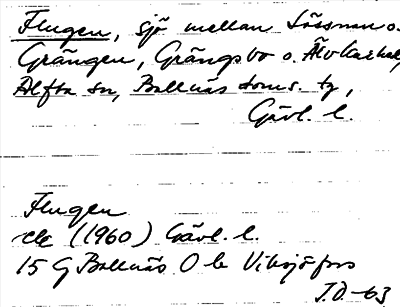 Flugen, sjö mellan Lössnan o.
Grängen, Grängsbo o. Älvkarhed,
Alfta sn, Bollnäs doms. tg,
Gävl. l.
Flugen
ek (1960) Gävl. l.
15 G Bollnäs O b Viksjöfors
J.D.-63